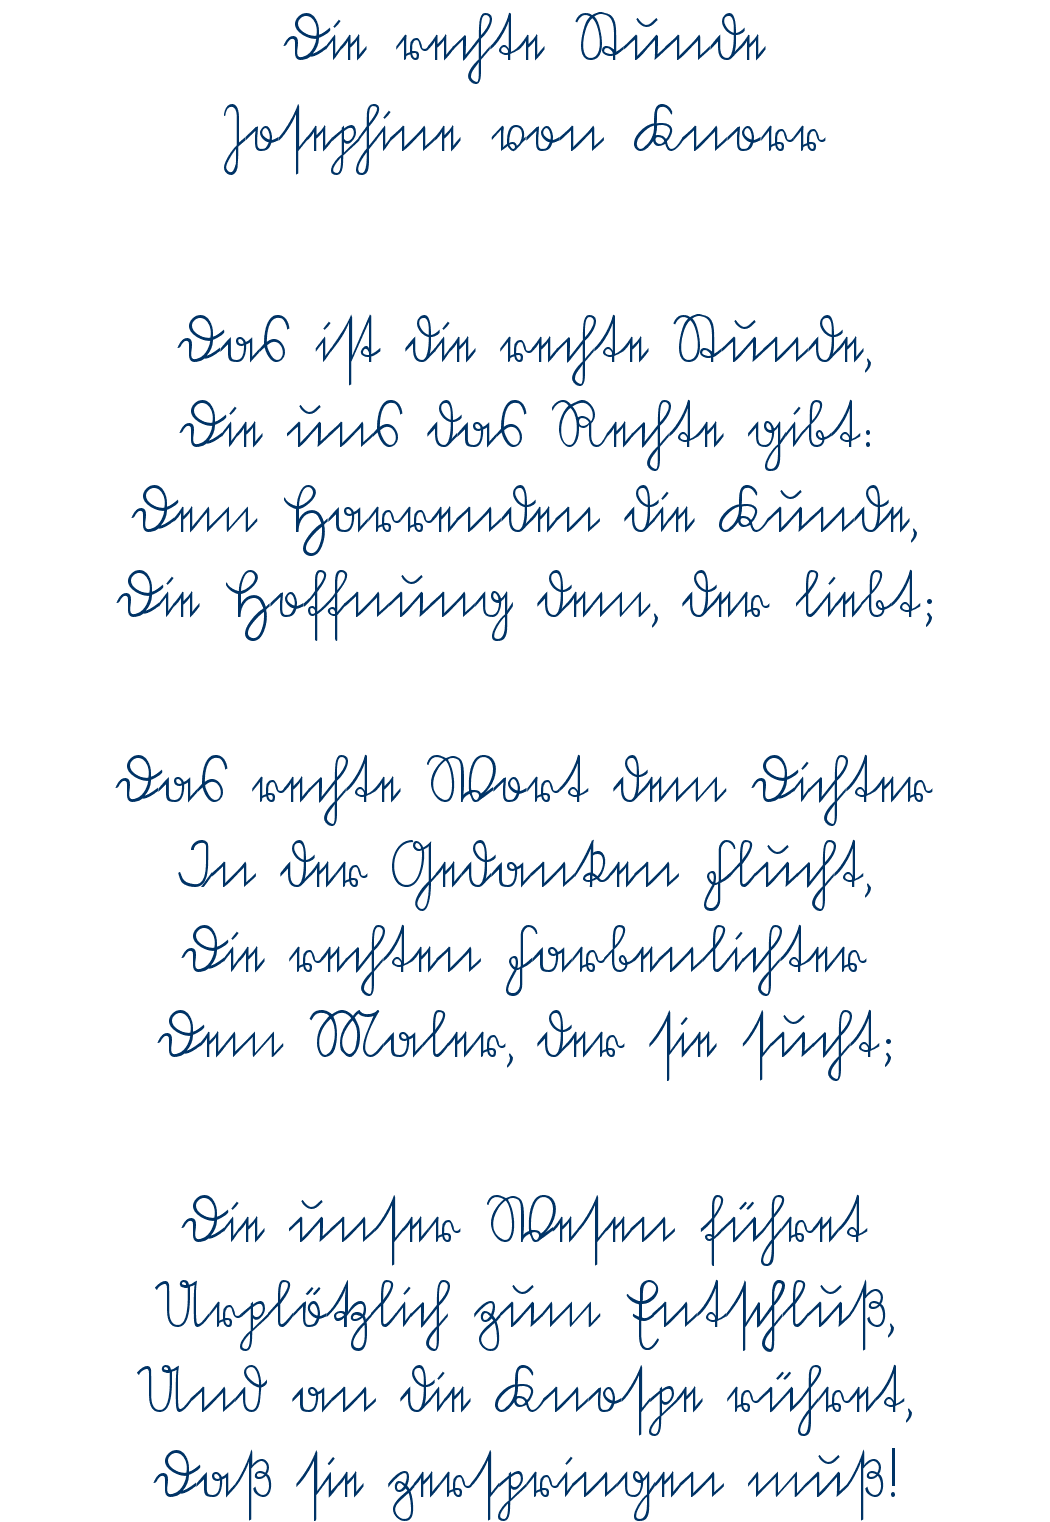 Die rechte Stunde
Josephine von Knorr
Das ist die rechte Stunde,
Die uns das Rechte gibt:
Dem Harrenden die Kunde,
Die Hoffnung dem, der liebt;
Das rechte Wort dem Dichter
In der Gedanken Flucht,
Die rechten Farbenlichter
Dem Maler, der sie sucht;
Die unser Wesen führet
Urplötzlich zum Entschluß,
Und an die Knospe rühret,
Daß sie zerspringen muß!